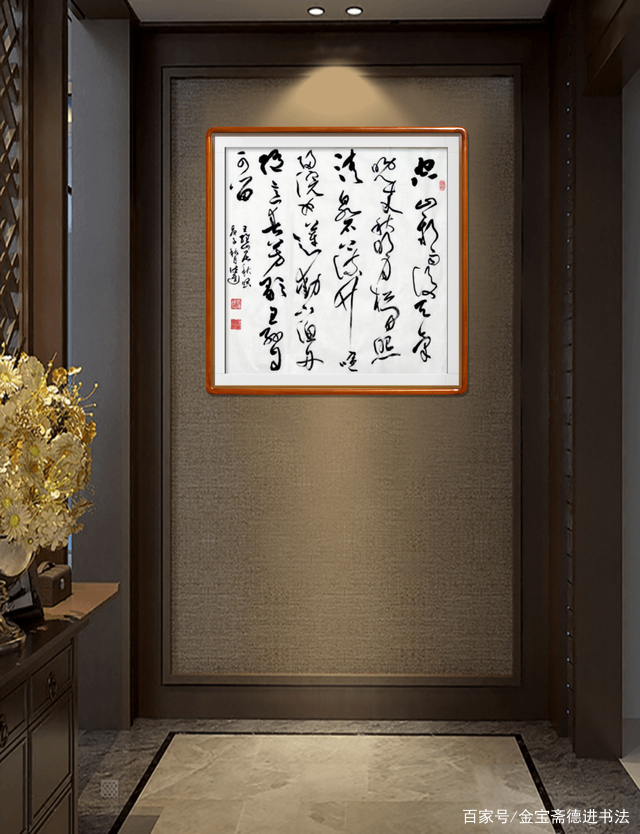 空山新雨後天氣
晚来秋明月松间照
清泉石上流竹喧
歸浣女蓮動下漁舟
随意春芳歇王孫自
可留
王維山居秋暝
百家号/金宝斋德进书法